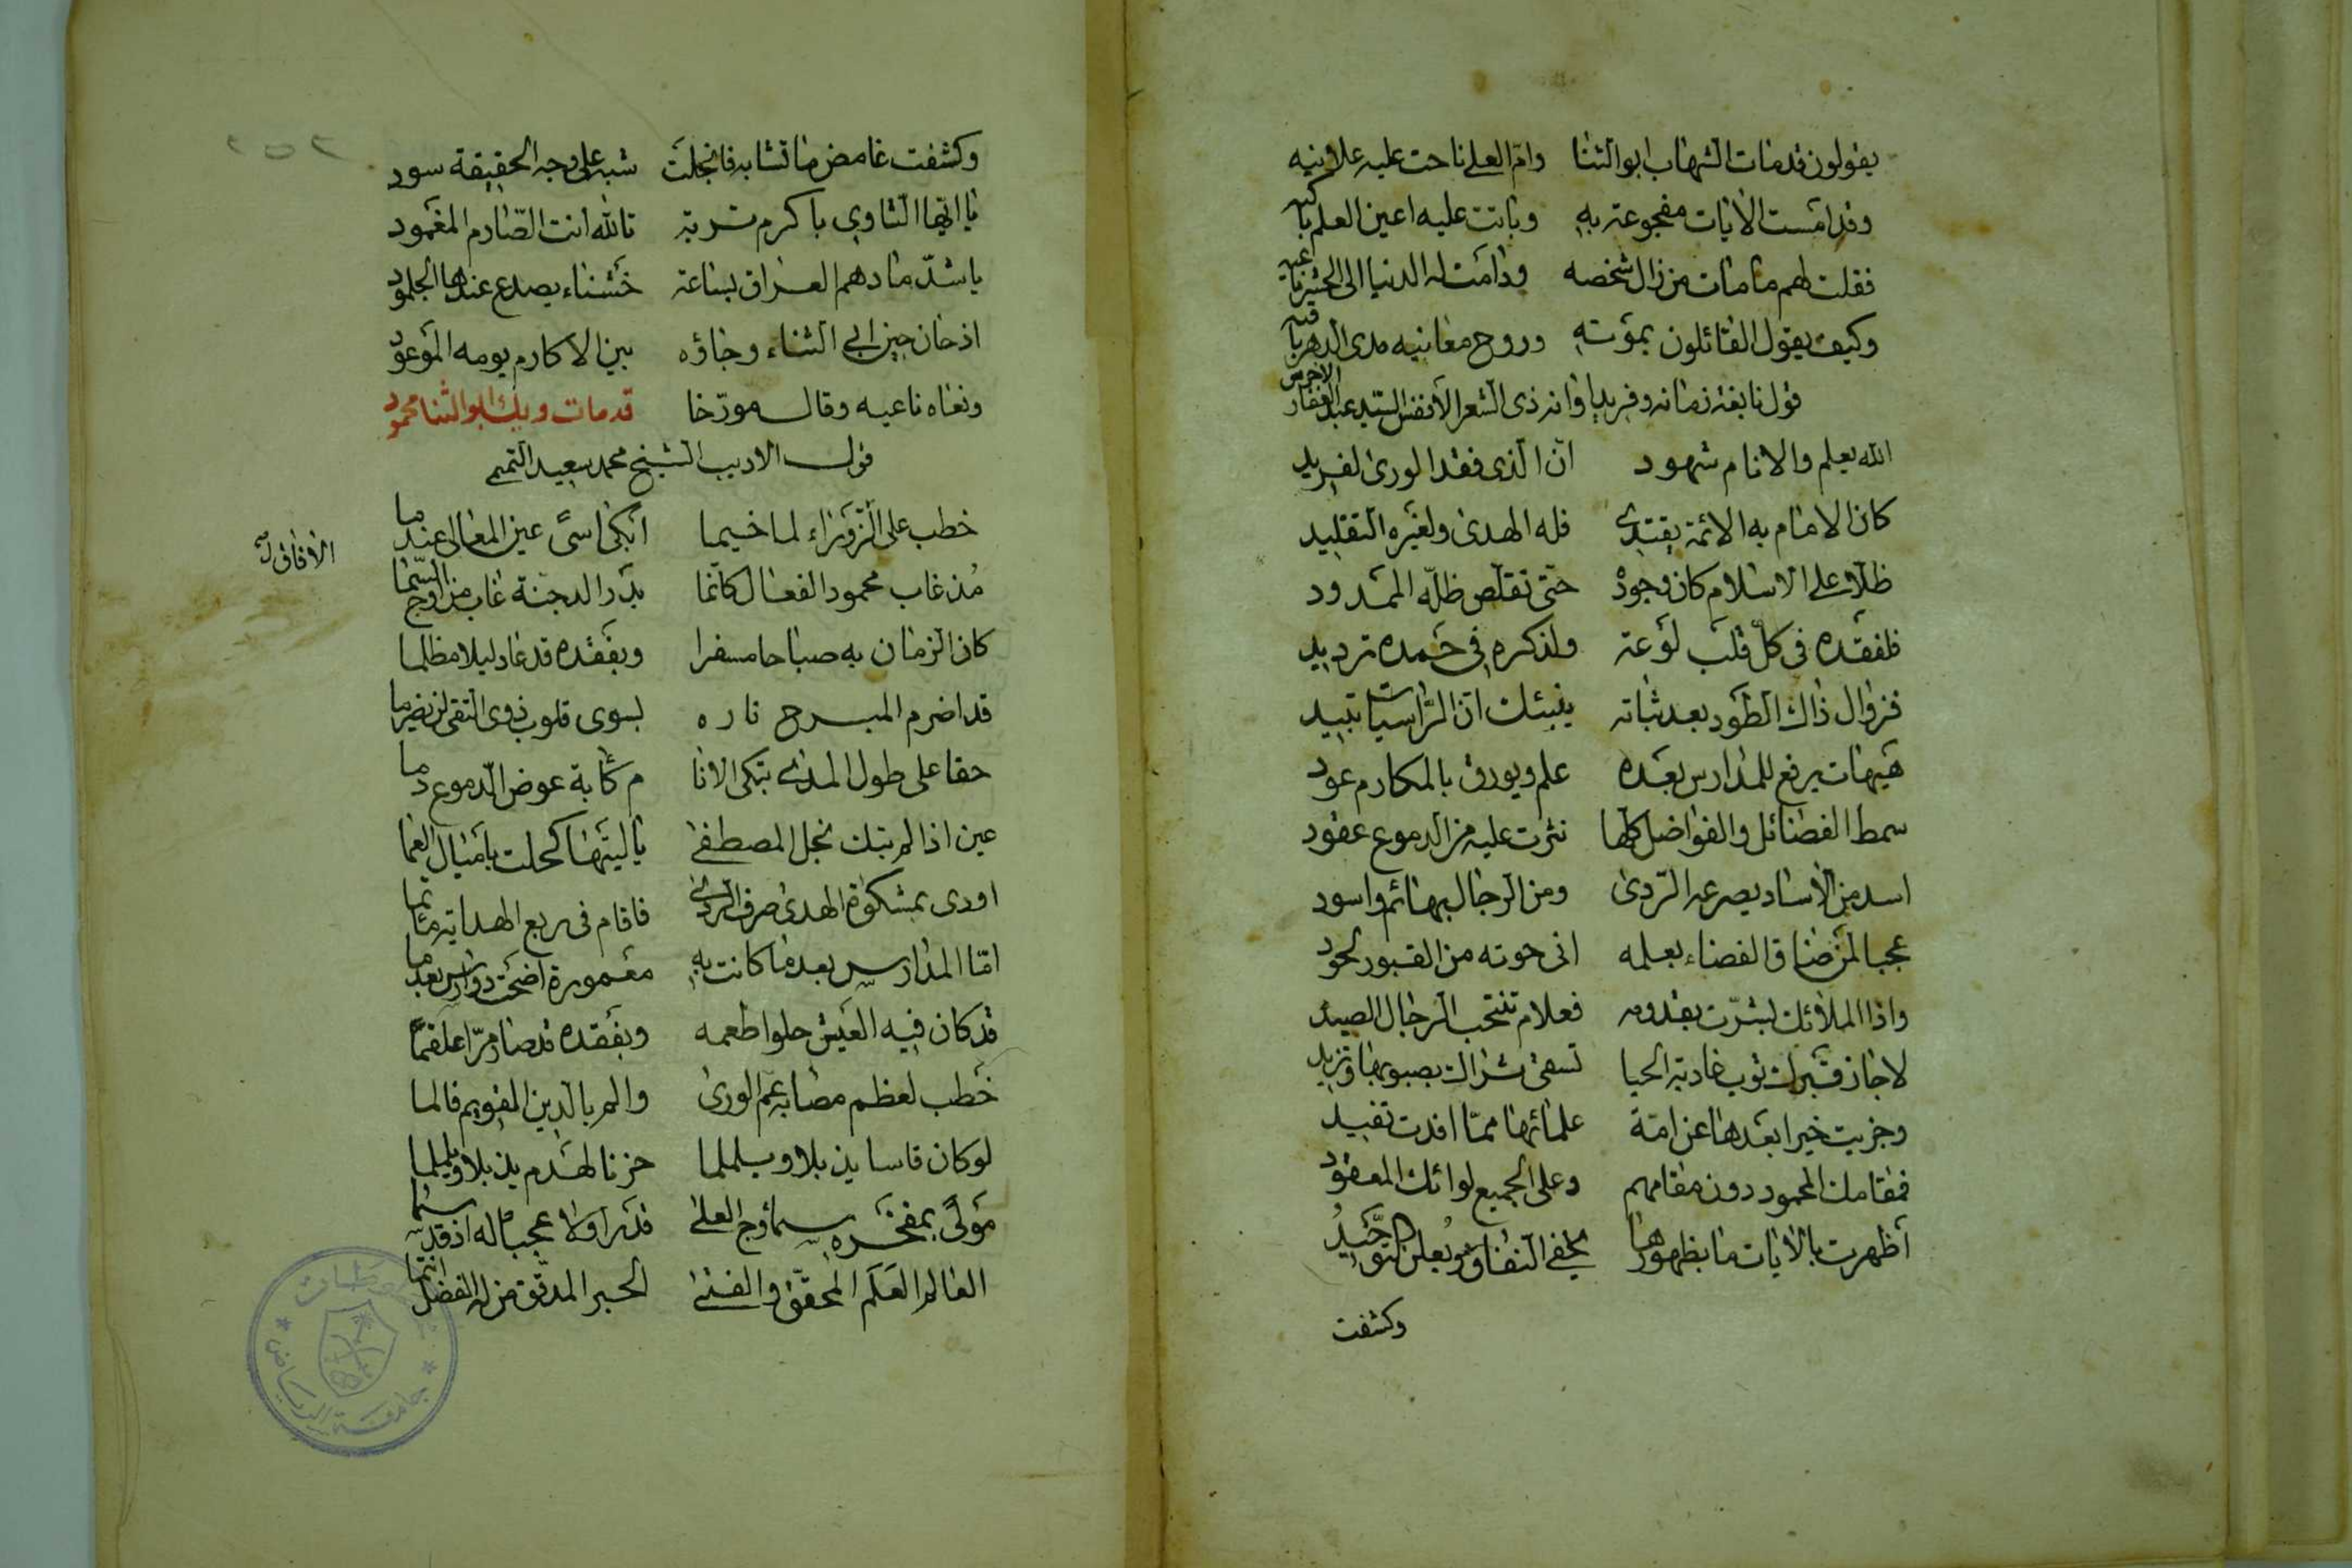 يقولون قد مات الشهاب ابو الثنا وام العلى ناحت عليه علانيه
وقد امست الايات مفجوعة به وباتت عليه اعين العلم باكيه
فقلت لهم ما مات من زال شخصه ودامت له الدنيا الى الحشر ناعيه
وكيف يقول القائلون بموته وروح معانيه مدى الدهر باقيه
قول نابغة زمانه وفريد اوانه ذى الشعر الانفس السيد عبد الغفار الاخرس
الله يعلم والانام شهود ان الذى فقد الورى لفريد
كان الامام به الائمة يقتدى فله الهدى ولغيره التقليد
ظلا على الاسلام كان وجوده حتى تقلص ظله الممدود
فلفقده فى كل قلب لوعة ولذكره فى حمده ترديد
فزوال ذاك الطود بعد ثباته ينبئك ان الراسيات تبيد
هيهات يرفع للمدارس بعده علم ويورق بالمكارم عود
سمط الفضائل والفواضل كلها نثرت عليه من الدموع عقود
اسد من الاساد يصرعه الردى ومن الرجال بهائم واسود
عجبا لمن ضاق الفضاء بعلمه انى حوته من القبور لحود
واذا الملائك بشرت بقدومه فعلام تنتحب الرجال الصيد
لا جاز قبرك ثوب غادية الحيا تسقى ثراك بصوبها وتزيد
وجزيت خيرا بعدها عن امة علمائها مما افدت تفيد
فمقامك المحمود دون مقامهم وعلى الجميع لوائك المعقود
اظهرت بالايات ما بظهورها يخفى النفاق ويعلن التوحيد
وكشفت
وكشفت غامض ما تشابه فانجلت شبه على وجه الحقيقة سود
يا ايها الثاوى باكرم تربة تالله انت الصارم المغمود
يا شد ما دهم العراق بساعة خشناء يصدع عندها الجلمود
اذ حان حين ابى الثناء وجاؤه بين الاكارم يومه الموعود
ونعاه ناعيه وقال مورخا قد مات ويك ابو الثنا محمود
قول الاديب الشيخ محمد سعيد التميمى
خطب على الزوراء لما خيما ابكى اسى عين المعالى عندما
مذ غاب محمود الفعال كانما بدر الدجنة غاب من اوج السما
كان الزمان به صباحا مسفرا وبفقده قد عاد ليلا مظلما
قد اضرم المبرح ناره بسوى قلوب ذوى التقى لن يضرما
حقا على طول المدى تبكى الانا م كابة عوض الدموع دما
عين اذا لم تبك نجل المصطفى يا ليتها كحلت باميال العما
اودى بمشكوة الهدى صرف الردى فاقام فى ربع الهداية ماتما
اما المدارس بعد ما كانت به معمورة اضحت دوارس بعدما
قد كان فيه العيش حلوا طعمه وبفقده قد صار مرا علقما
خطب لعظم مصابه عم الورى والم بالدين القويم فالما
لو كان قاسا يذبلا ويلملما حزنا لهدم يذبلا ويلملما
مولى بمفخره سما اوج العلى قدرا ولا عجبا له اذ قد سما
العالم العلم المحقق والفتى الحبر المدقق من له الفضل انتما
جامعة الرياض